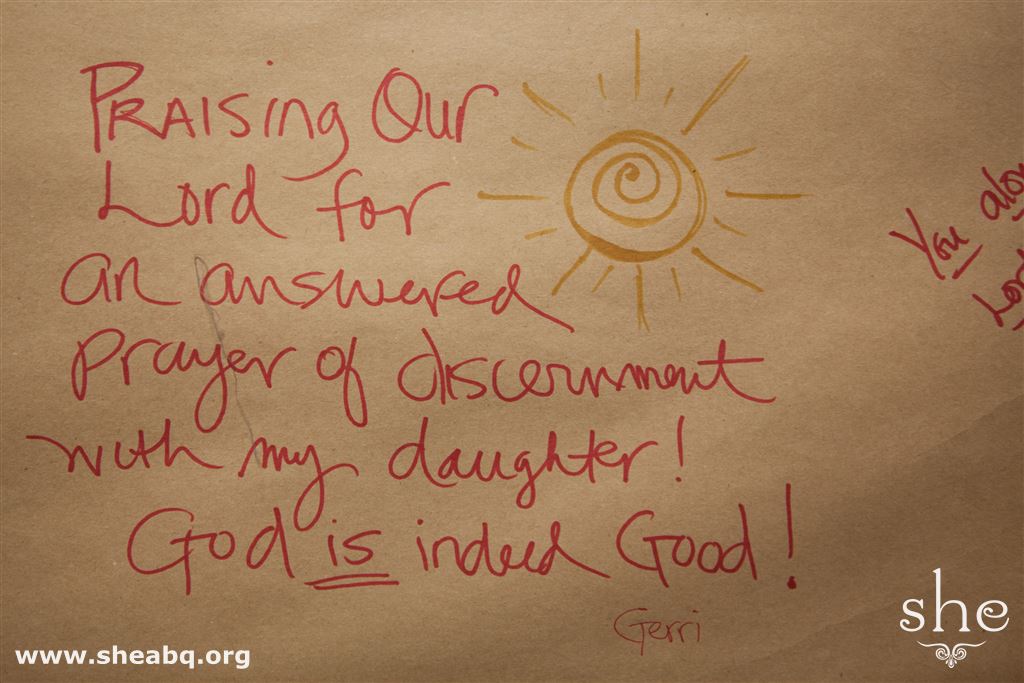 PRAISing Our
Lord for
an answered
prayer of discernment
with my daughter!
God is indeed Good!
Gerri
You
she
www.sheabq.org